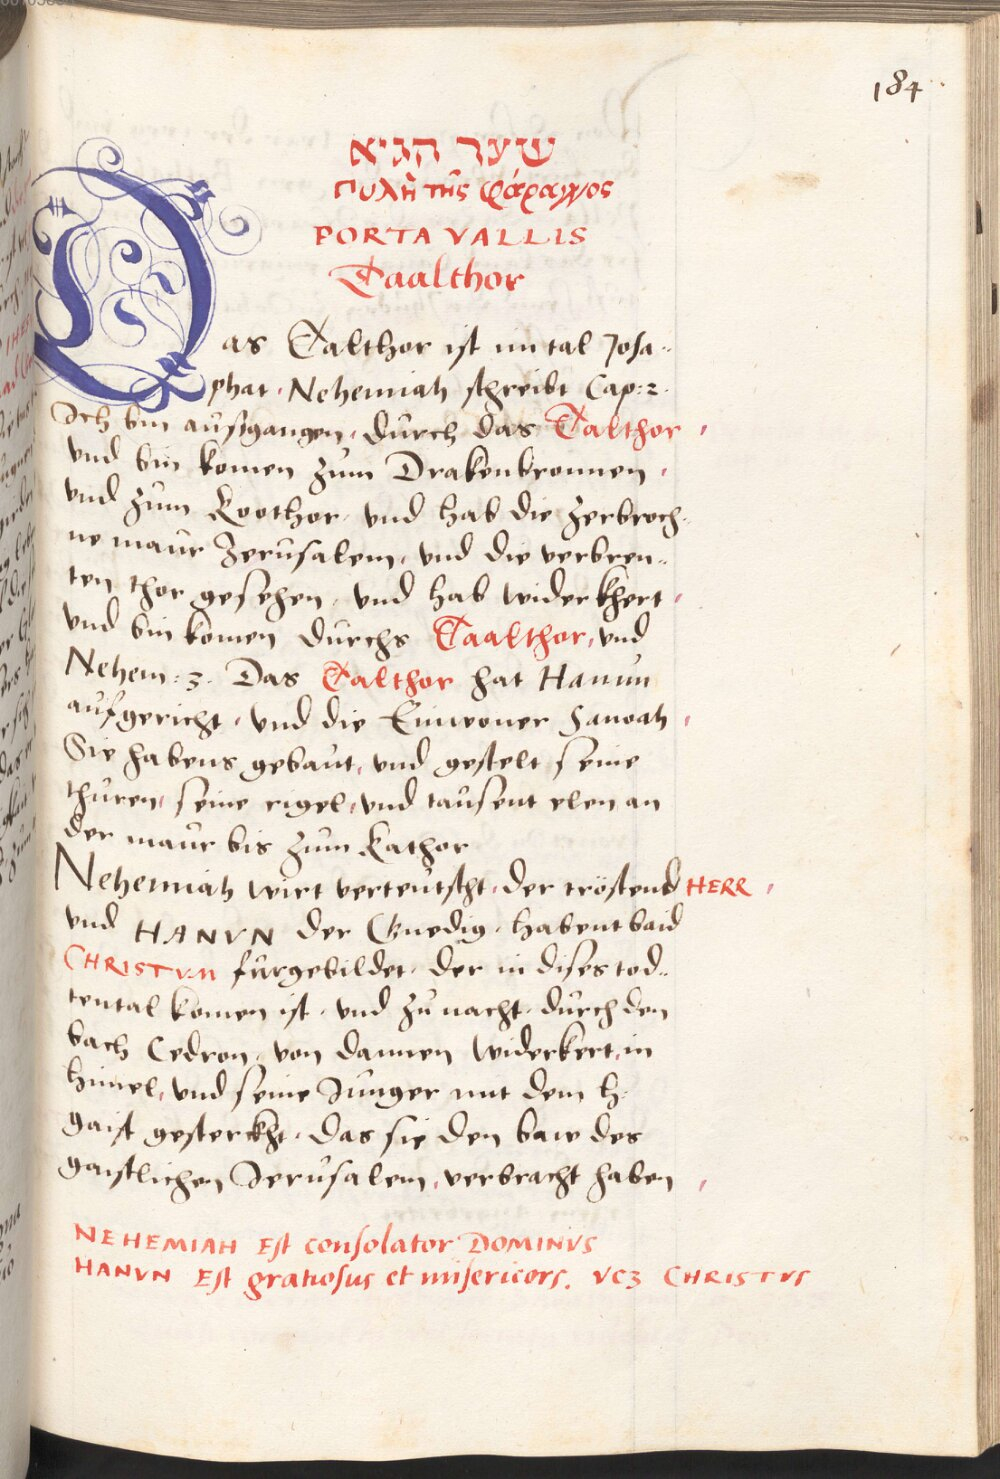 184
שער הגיא
πυλὴ τῆς φάραγγος
PORTA VALLIS
Taalthor
Das Talthor ist im tal Josa-
phat. Nehemiah schreibt Cap: 2.
Ich bin aussgangen, durch das Talthor,
vnd bin komen zum Drakenbronnen,
vnd zum Koothor, vnd hab die zerbroch-
ne maur Jerusalem, vnd die verbren-
ten thor gesehen, vnd hab widerkhert,
vnd bin komen durchs Taalthor, vnd
Nehem: 3. Das Talthor hat Hanun
aufgericht, vnd die Einwoner Sanoah,
Sie habens gebaut, vnd gestelt seine
thuren, seine rigel, vnd tausent elen an
der maur bis zum Kathor
Nehemiah wirt verteutscht, der tröstend HERR,
vnd HANVN der Gnedig, habent baid
CHRISTVM furgebildet, der in dises tod-
tental komen ist, vnd zu nacht, durch den
bach Cedron, von dannen widerkert, in
himel, vnd seine Junger mit dem h.
gaist gesterckht, das sie den baw des
gaistlichen Jerusalem, verbracht haben,
NEHEMIAH Est consolator DOMINVS
HANVN Est gratiosus et misericors. vcz CHRISTVS